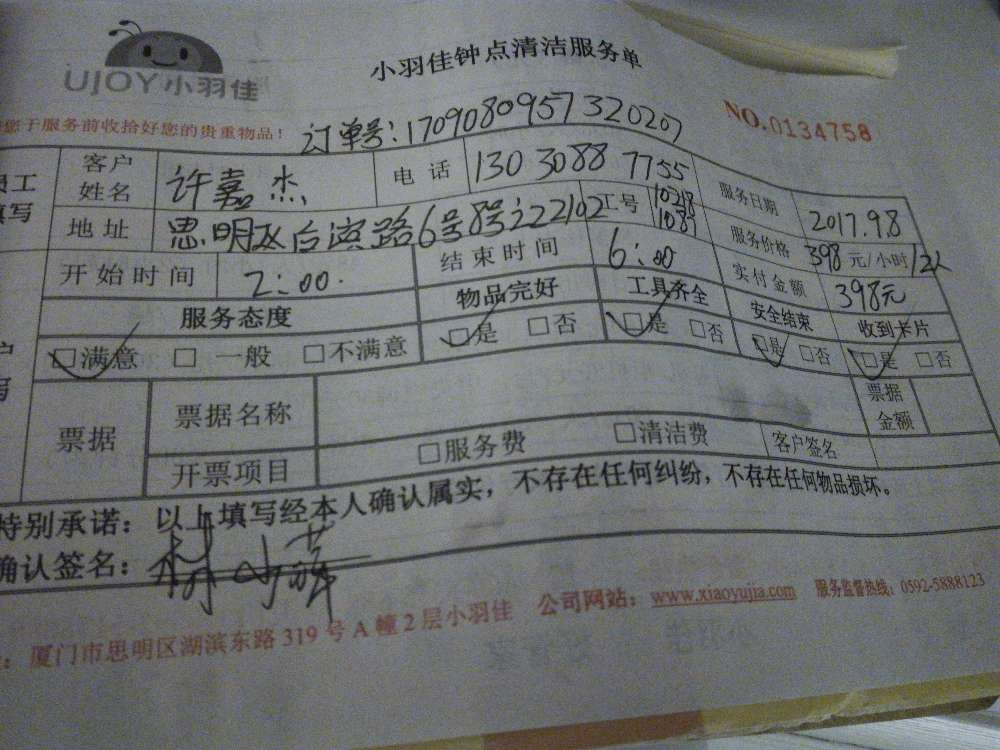 UJOY小羽佳
小羽佳钟点清洁服务单
您于服务前收拾好您的贵重物品！
NO.0134758
订单号：170908095732020​7
员工 填写
客户姓名 许嘉杰 电话 130 3088 7755 服务日期 2017.9.8
地址 思明区 路6号8号 2102 工号 1028 1087 服务价格 398元/小时/2人
开始时间 2:00. 结束时间 6:00 实付金额 398元
服务态度 物品完好 工具齐全 安全结束 收到卡片
□满意 □一般 □不满意 □是 □否 □是 □否 □是 □否 □是 □否
票据 票据名称 票据金额
开票项目 □服务费 □清洁费 客户签名
特别承诺：以上填写经本人确认属实，不存在任何纠纷，不存在任何物品损坏。
确认签名：林小萍
厦门市思明区湖滨东路319号A幢2层小羽佳 公司网站：www.xiaoyujia.com 服务监督热线：0592-5888123